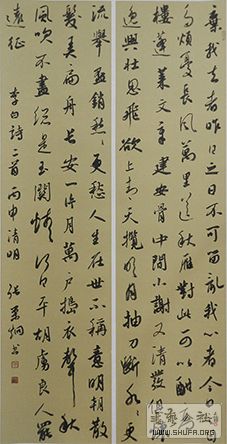 棄我去者昨日之日不可留亂我心者今日之日
多煩憂長風萬里送秋雁對此可以酣高
樓蓬萊文章建安骨中間小謝又清發俱懷
逸興壯思飛欲上青天攬明月抽刀斷水水更
流舉盃銷愁愁更愁人生在世不稱意明朝散
髮弄扁舟長安一片月萬戶擣衣聲秋
風吹不盡總是玉關情何日平胡虜良人罷
遠征 李白詩二首丙申清明 張炯書
WWW.SHUFA.ORG